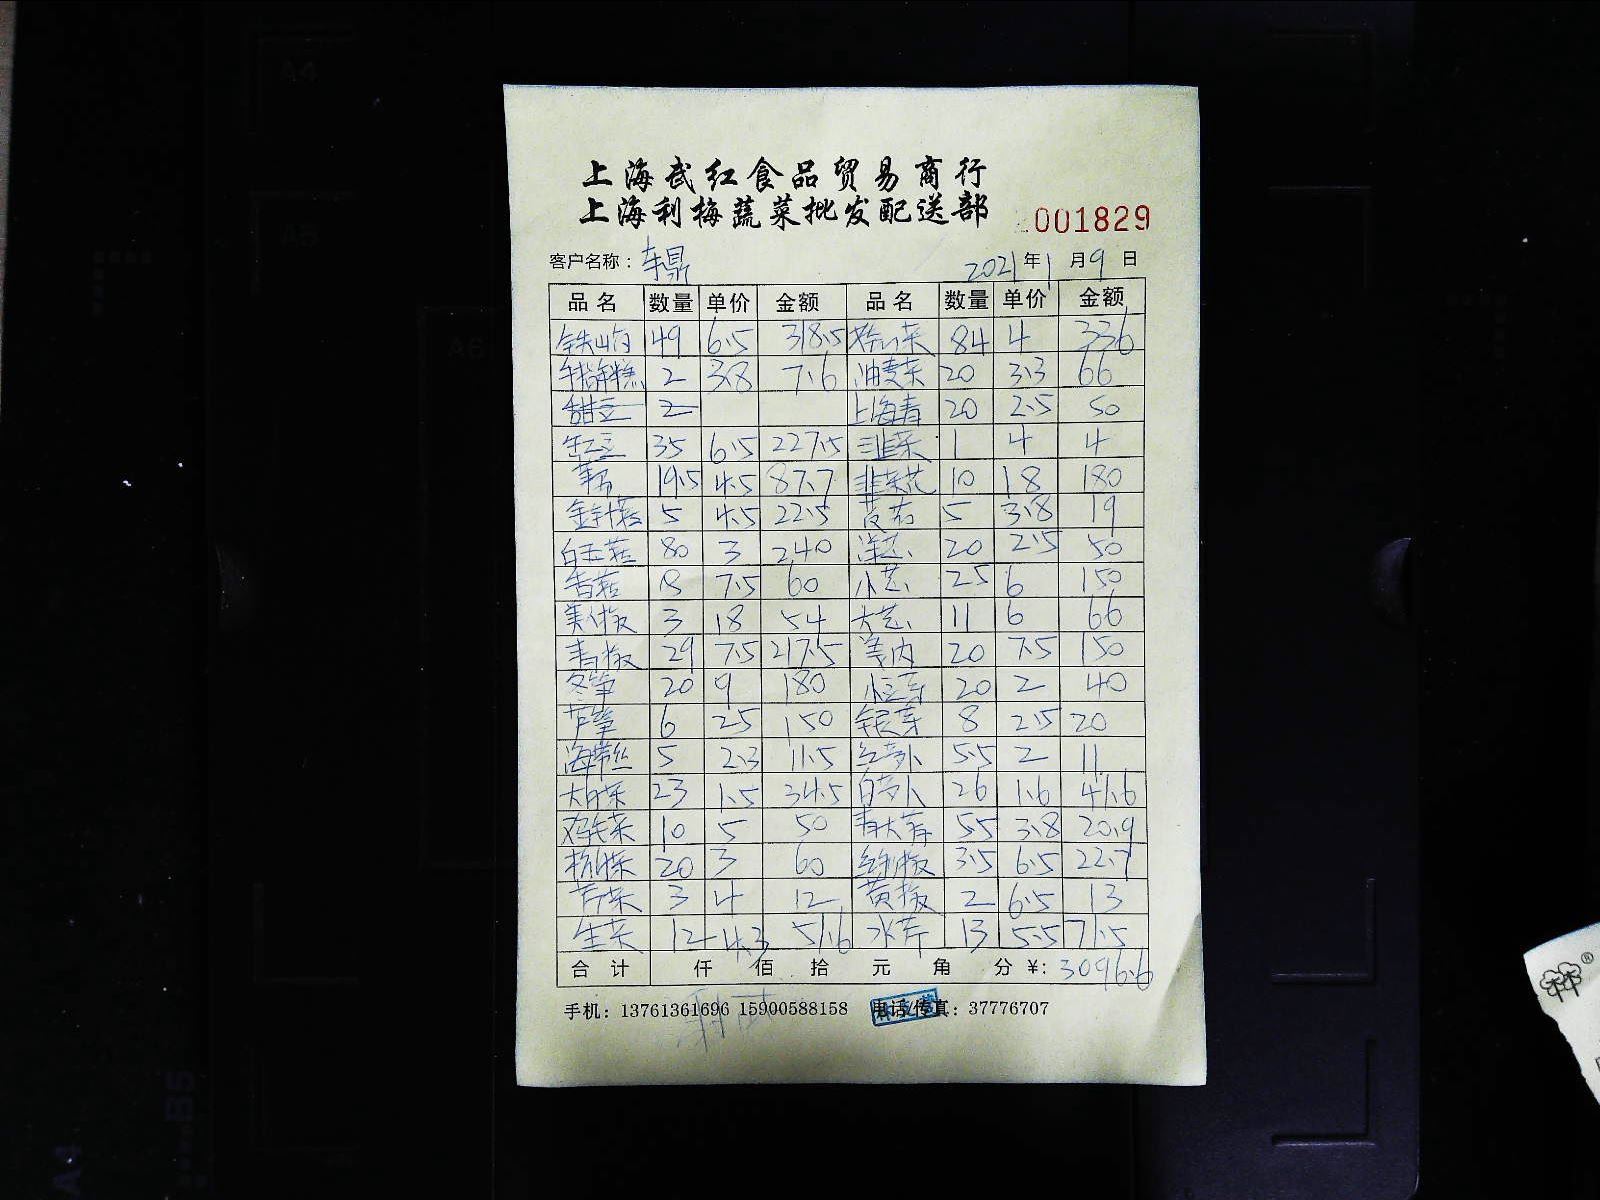 上海武红食品贸易商行
上海利梅蔬菜批发配送部 001829
客户名称： 2021年1月9日
品名 数量 单价 金额 品名 数量 单价 金额
49 6.5 318.5 84 4 336
2 3.8 7.6 油麦菜 20 3.3 66
甜豆 2 上海青 20 2.5 50
35 6.5 227.5 韭菜 1 4 4
19.5 4.5 87.7 韭菜花 10 18 180
金针菇 5 4.5 22.5 5 3.8 19
白玉菇 80 3 240 20 2.5 50
香菇 8 7.5 60 25 6 150
美人椒 3 18 54 11 6 66
青椒 29 7.5 217.5 20 7.5 150
冬笋 20 9 180 20 2 40
芦笋 6 25 150 银芽 8 2.5 20
海带丝 5 2.3 11.5 红萝卜 5.5 2 11
大白菜 23 1.5 34.5 白萝卜 26 1.6 41.6
鸡毛菜 10 5 50 5.5 3.8 20.9
杭白菜 20 3 60 3.5 6.5 22.7
芹菜 3 4 12 黄椒 2 6.5 13
生菜 12 4.3 51.6 水芹 13 5.5 71.5
合计 仟 佰 拾 元 角 分 ¥: 3096.6
手机：13761361696 15900588158 电话/传真：37776707
A4
A5
A6
B5
A4